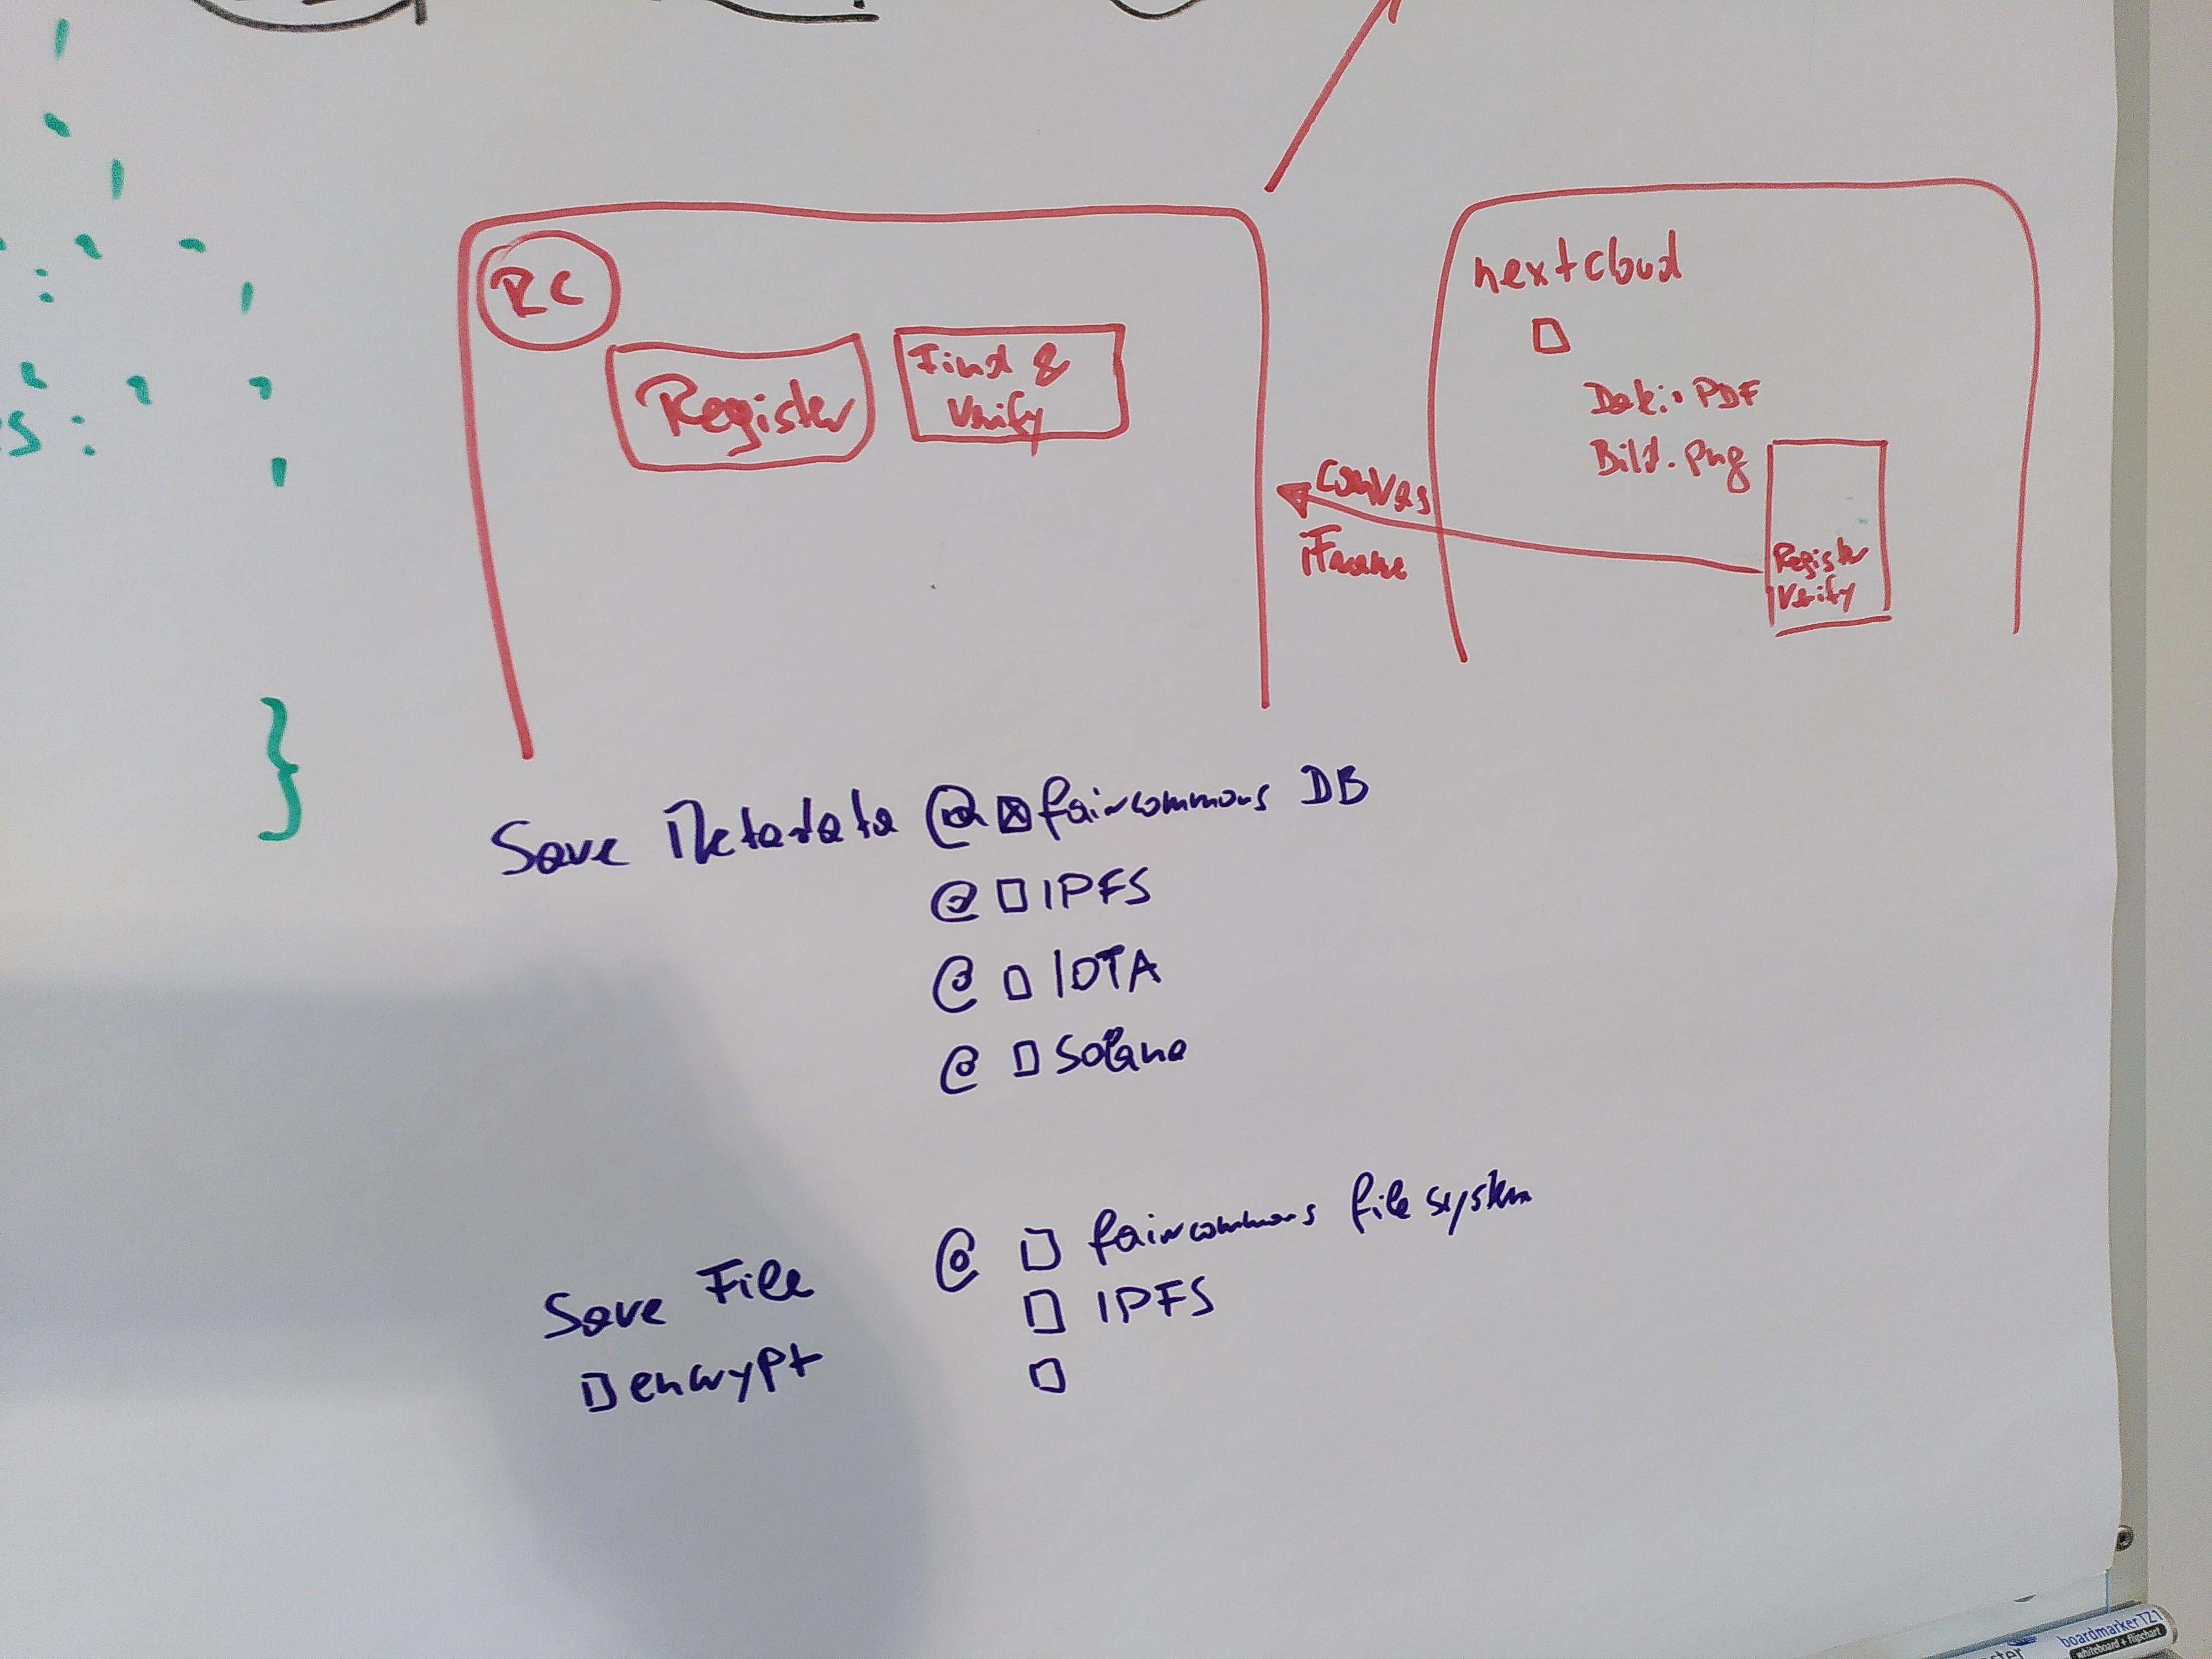 s:
}
RC
Register
Find &
Verify
nextcloud
Datei.PDF
Bild.png
Canvas
iFrame
Register
Verify
Save Metadata @ ☒ faircommons DB
@ □ IPFS
@ □ IOTA
@ □ Solana
Save File @ □ faircommons file system
□ IPFS
□ encrypt □
boardmarker TZ1
whiteboard + flipchart